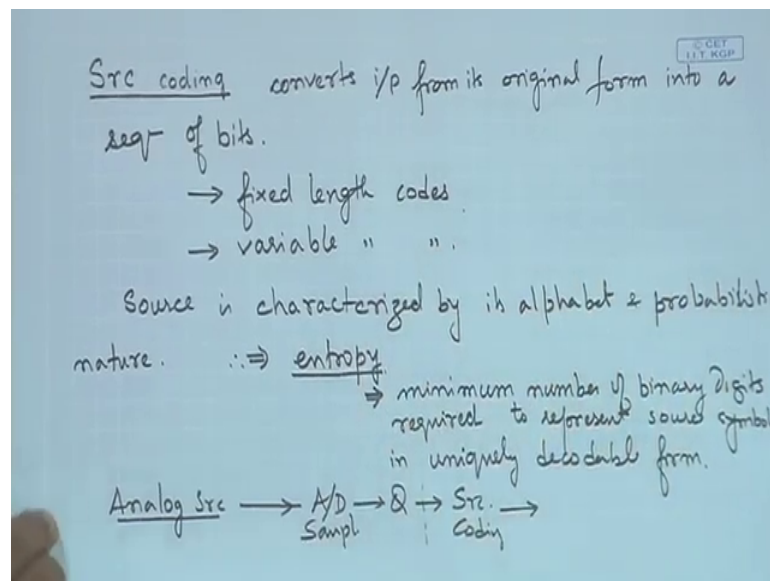 © CET
I.I.T. KGP
Src coding converts i/p from its original form into a
seq of bits.
→ fixed length codes
→ variable " ".
Source is characterized by its alphabet & probabilist
nature. ∴⇒ entropy
⇒ minimum number of binary digits
required to represent source symbol
in uniquely decodable form.
Analog Src → A/D → Q → Src. →
Sampl Coding